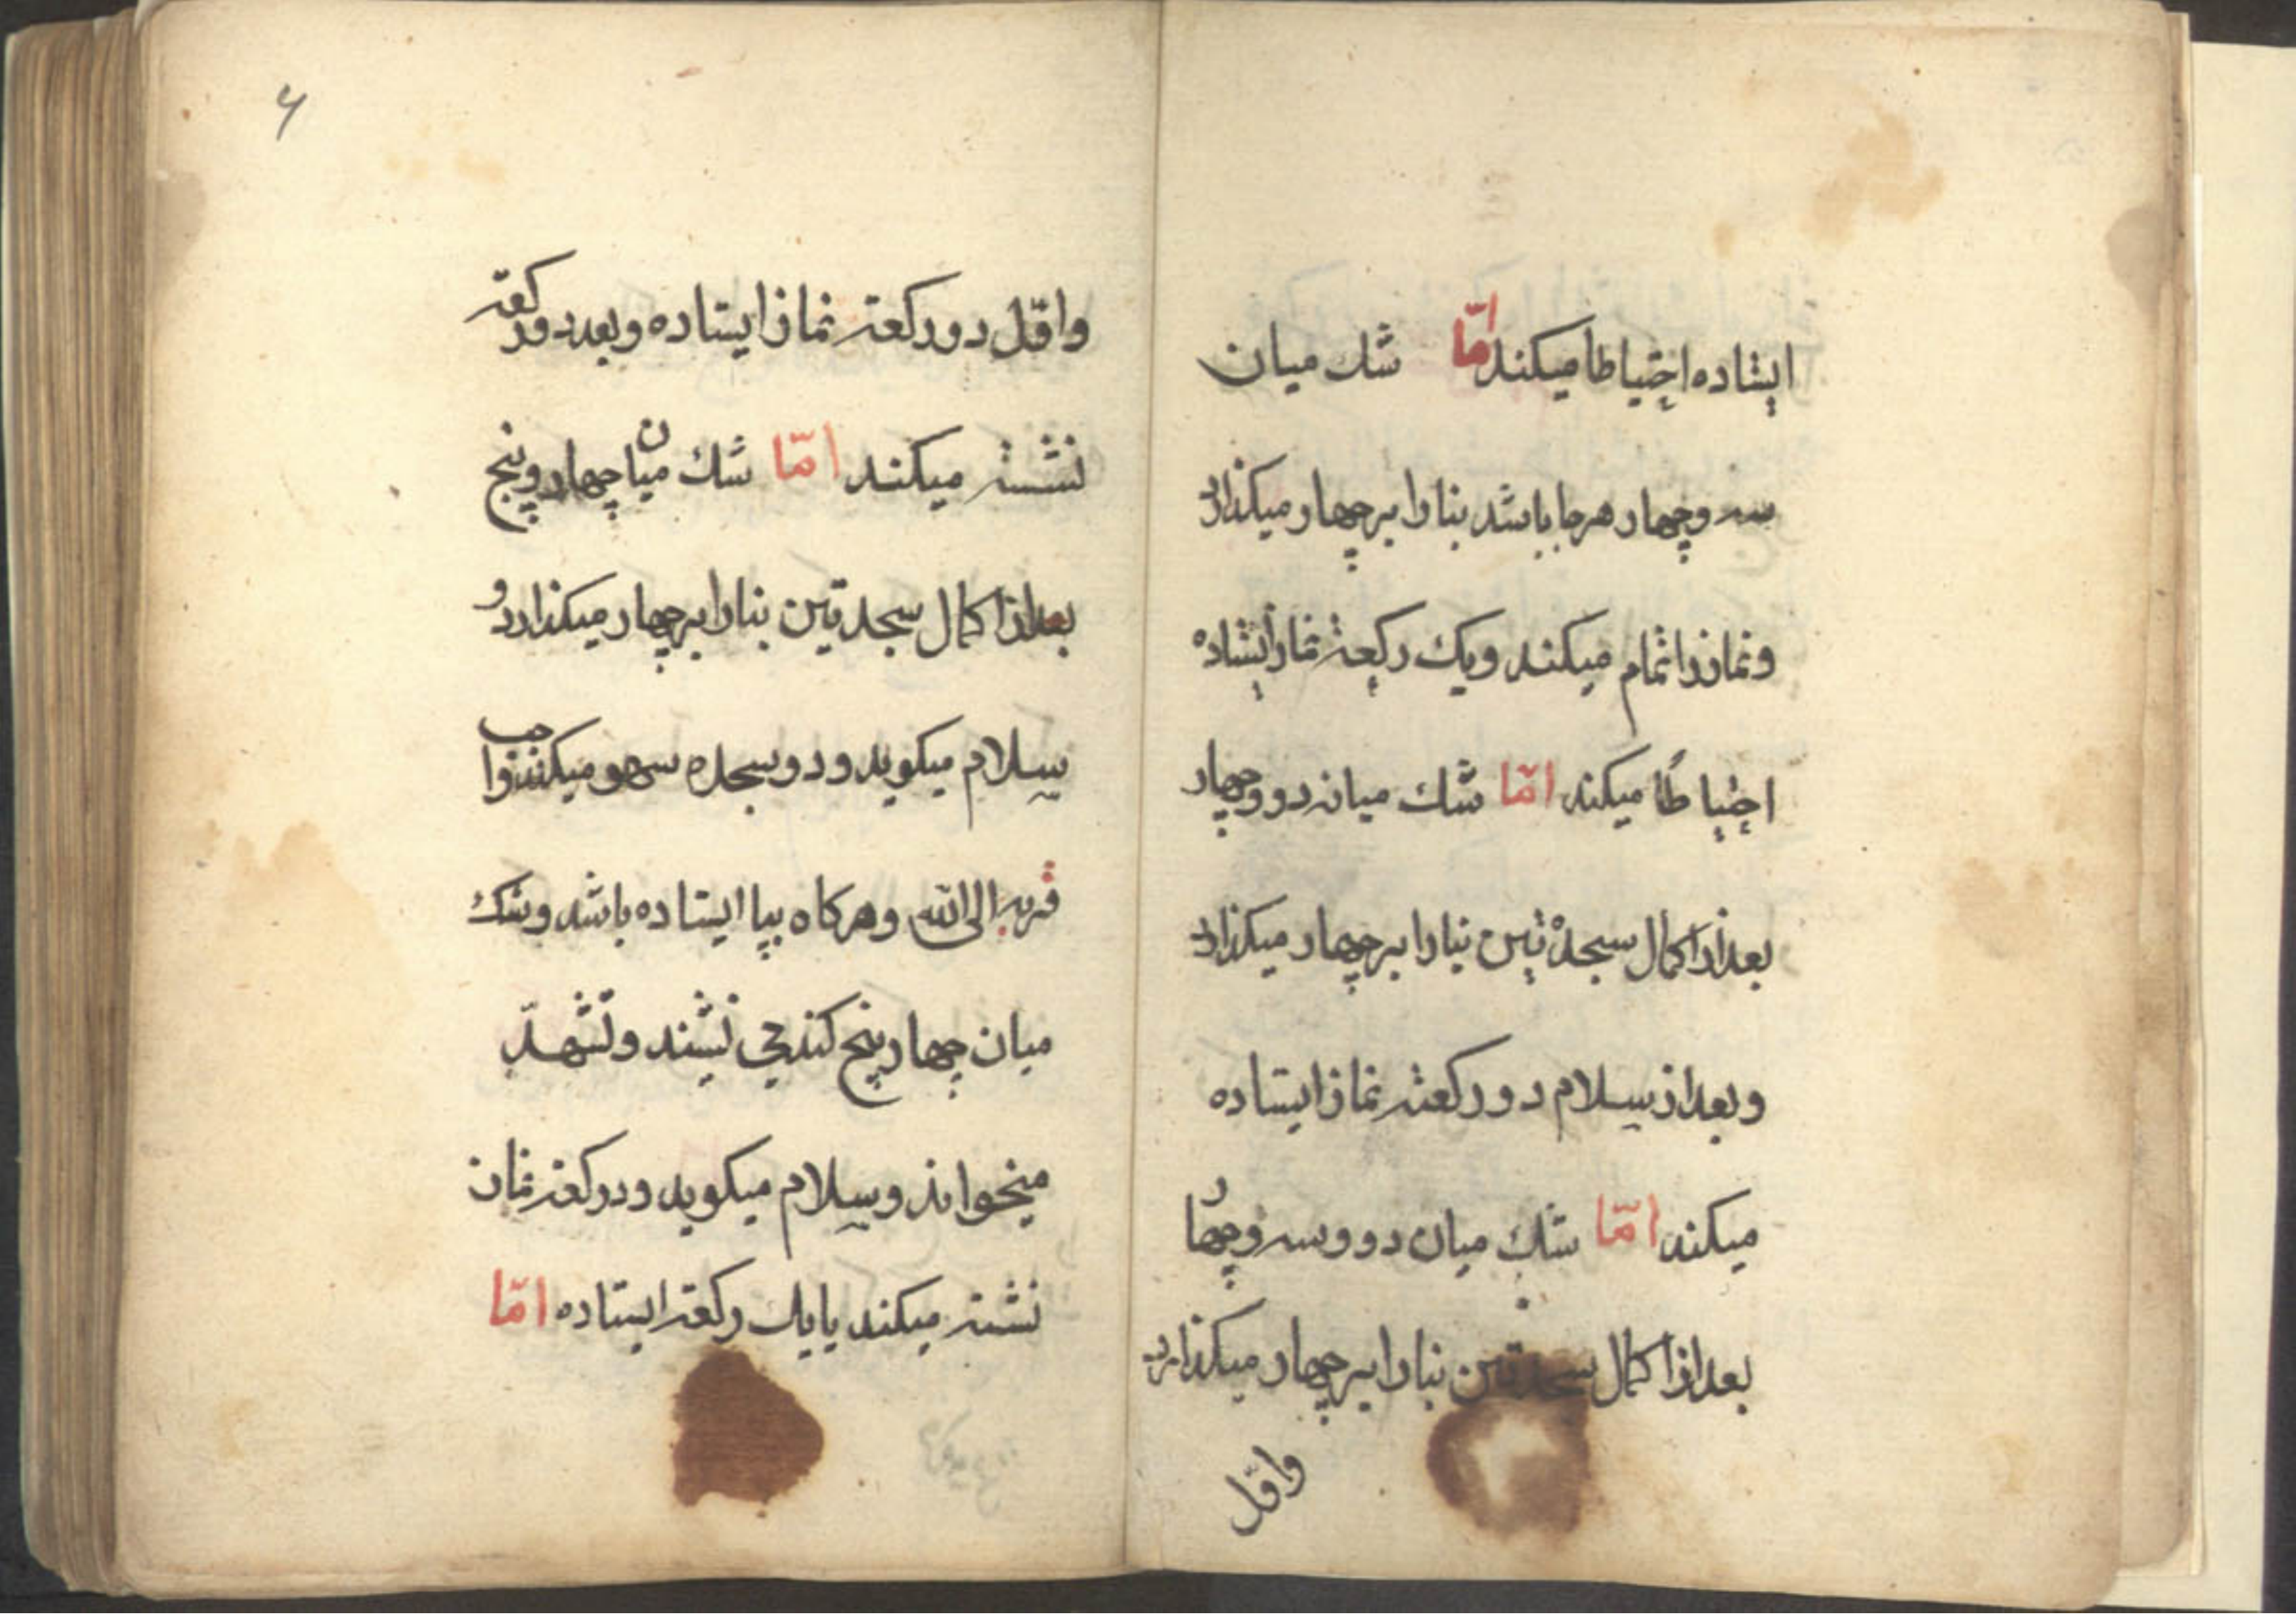 ایستاده احتیاطا میکند امّا شك میان
سه وچهار هرجا باشد بنا را بر چهار میکذارد
ونماز را تمام میکند ویك رکعته نماز ایستاده
احتیاطًا میکند امّا شك میانه دو وچهار
بعد از اکمال سجدة تین بنا را بر چهار میکذارد
وبعد از سلام دو رکعته نماز ایستاده
میکند امّا شك میان دو وسه وچهار
بعد از اکمال سجدتین بنا را بر چهار میکذارد
واوّل
۶
واوّل دو رکعته نماز ایستاده وبعد دو رکعته
نشسته میکند امّا شك میان چهار وپنج
بعد از اکمال سجدتین بنا را بر چهار میکذارد و
سلام میکوید ودو سجده سهو میکند واجب
قربه الی الله وهرکاه بپا ایستاده باشد وشك
میان چهار پنج کند می نشیند وتشهدّ
میخواند وسلام میکوید ودو رکعته نماز
نشسته میکند یا یك رکعته ایستاده امّا